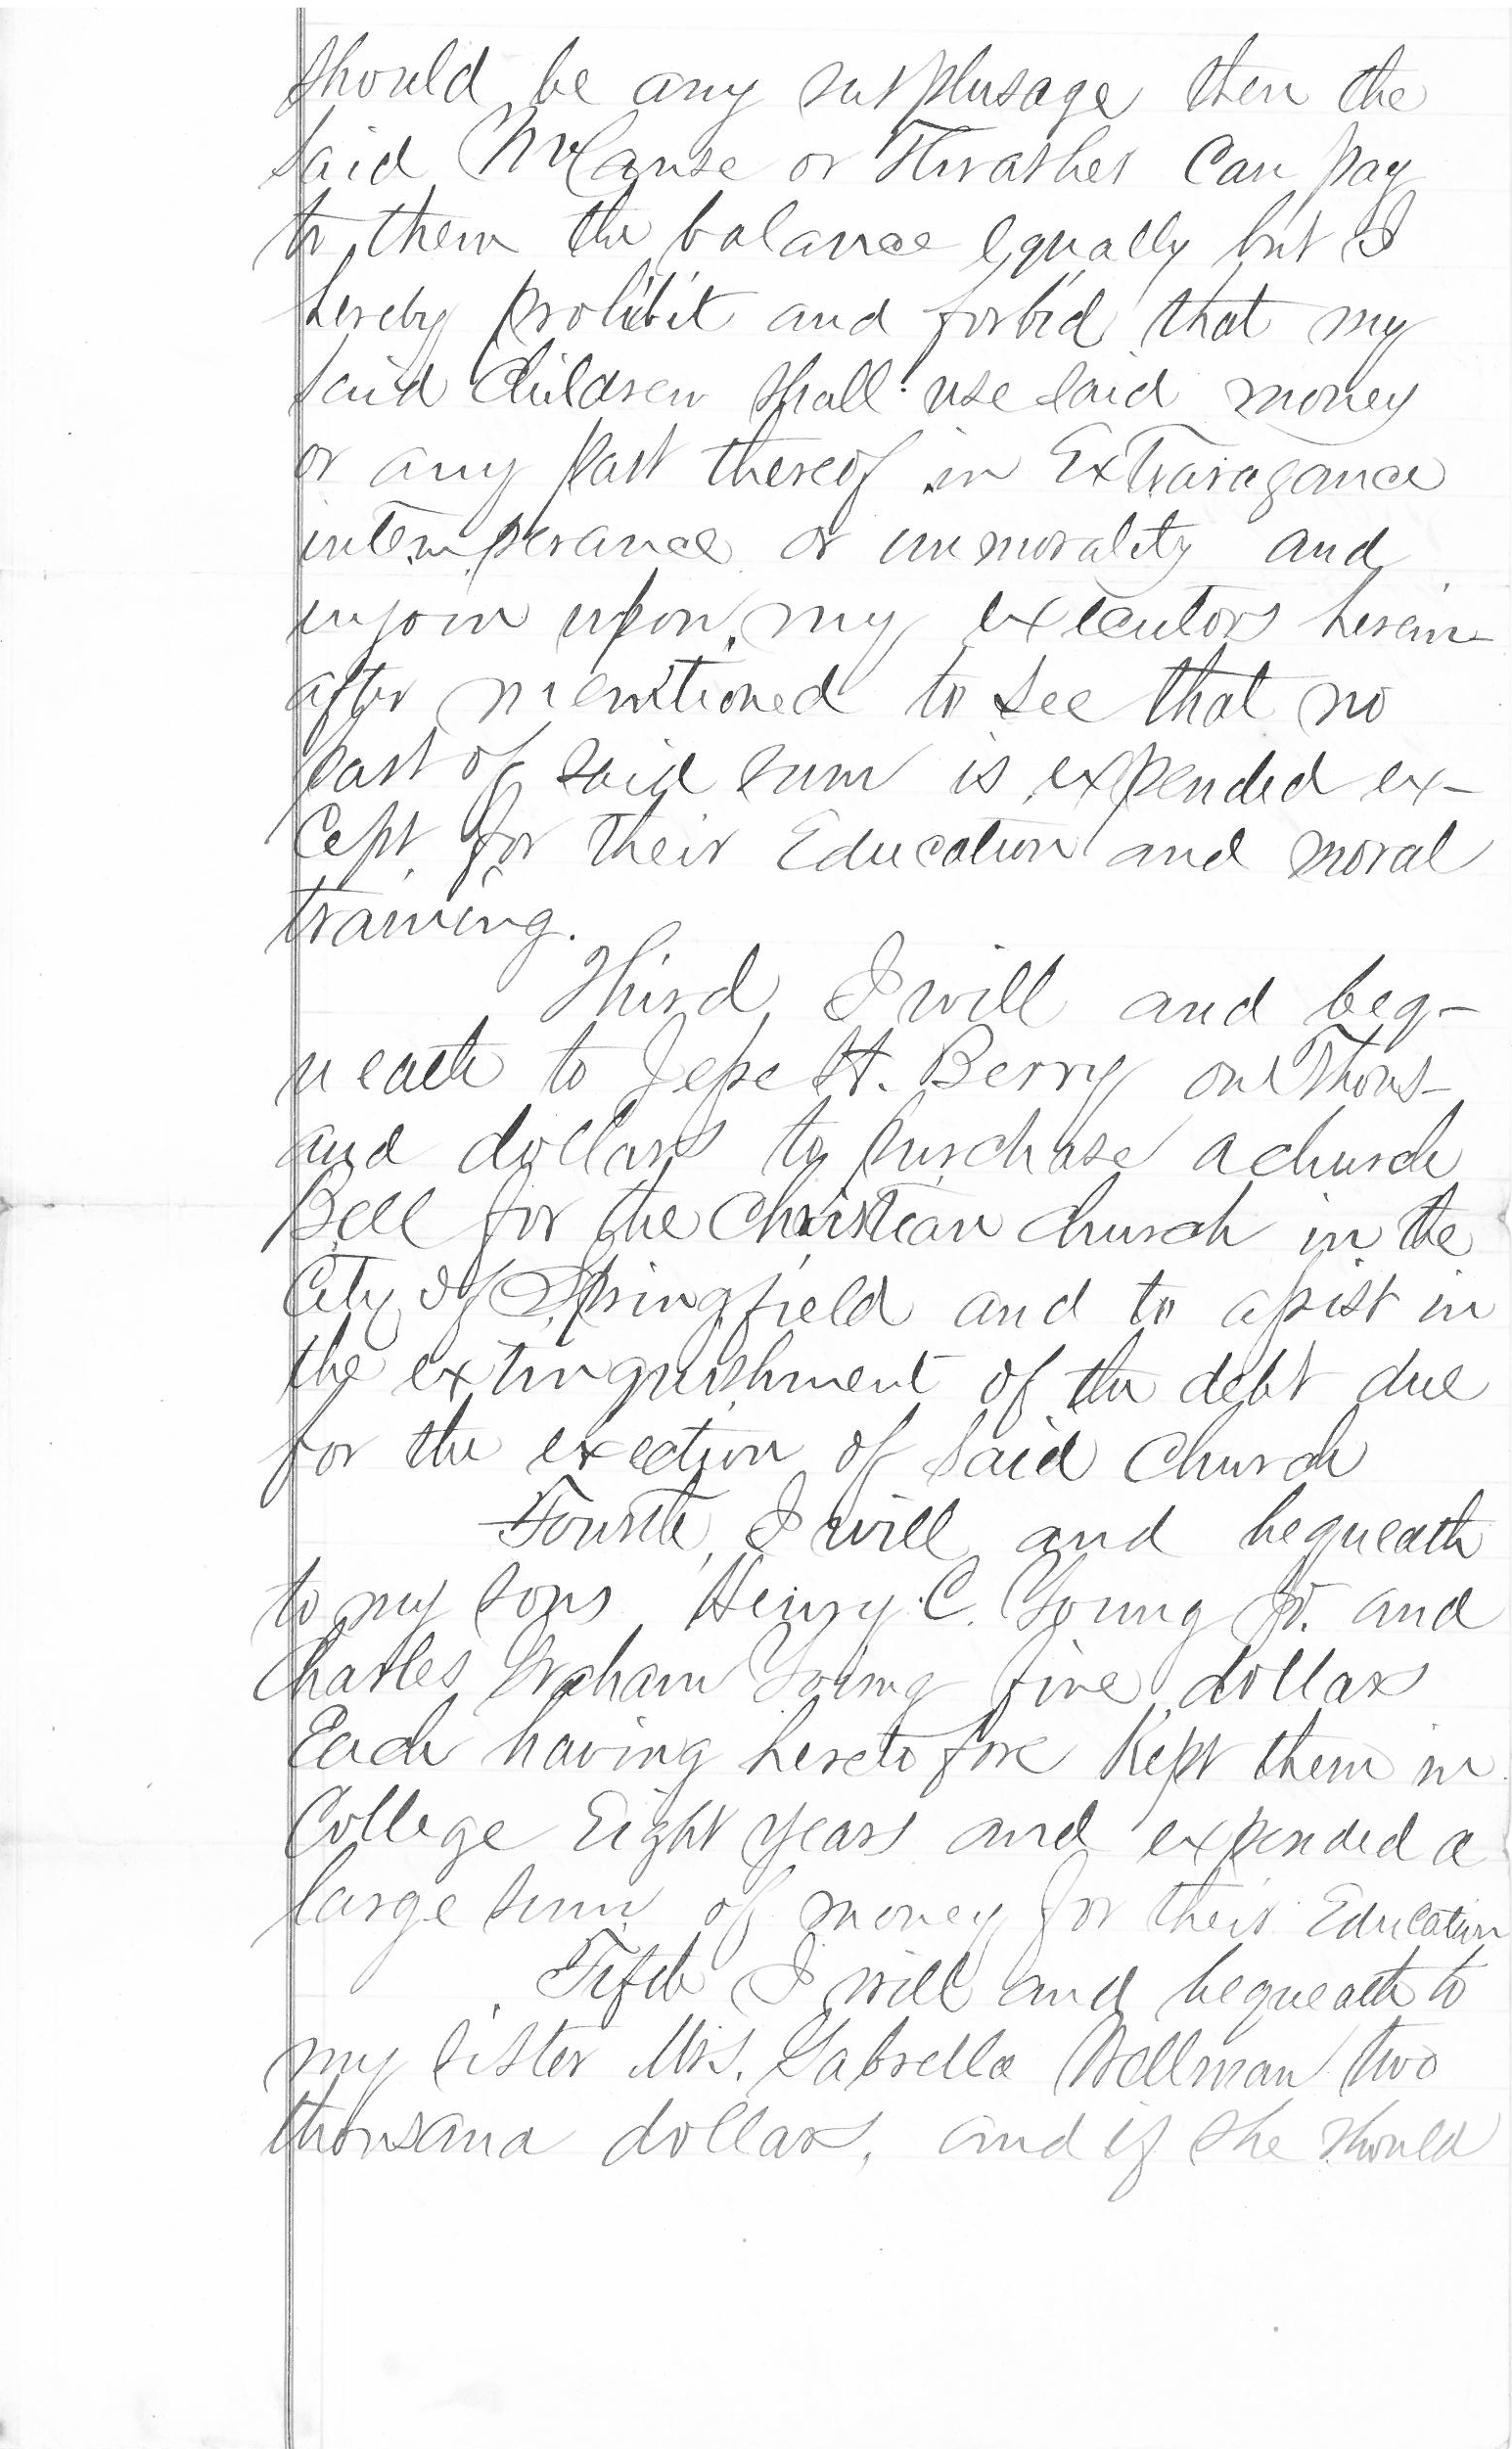 should be any surplusage then the
said McCanse or Thrasher can pay
to them the balance equally but I
hereby prohibit and forbid that my
said Children shall use said money
or any part thereof in Extravagance
intemperance or immorality and
injoin upon my executors herein
after mentioned to see that no
part of said sum is expended ex-
cept for their Education and moral
training.
Third I will and beq-
ueath to Jesse H. Berry one Thous-
and dollars to purchase a church
Bell for the Christian church in the
City of Springfield and to assist in
the extinguishment of the debt due
for the erection of said Church
Fourth, I will and bequeath
to my sons Henry C. Young Jr. and
Charles Graham Young five dollars
Each having heretofore kept them in
College Eight years and expended a
large sum of money for their Education
Fifth I will and bequeath to
my sister Mrs. Gabrella Wellman two
thousand dollars, and if she should